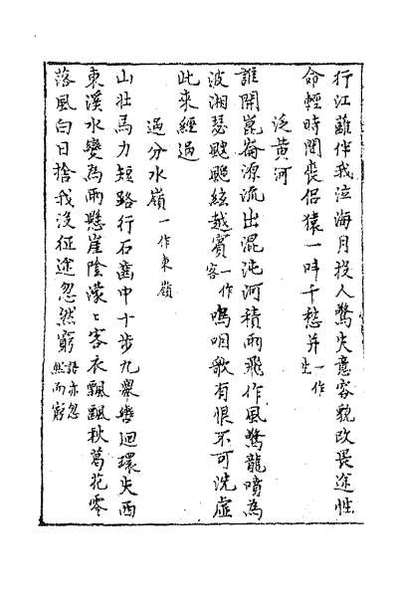 行江離伴我泣海月投人驚失意容貌改畏途性
命輕時聞喪侶猿一叫千愁并一作生
泛黄河
誰開崑崙源流出混沌河積雨飛作風驚龍噴為
波湘瑟颼飀絃越賓一作客嗚咽歌有恨不可洗虛
此來經過
過分水嶺一作東嶺
山壯馬力短路行石齒中十步九舉轡迴環失西
東溪水變為雨懸崖陰濛〻客衣飄飄秋葛花零
落風白日捨我沒征途忽然窮語亦忽然而窮